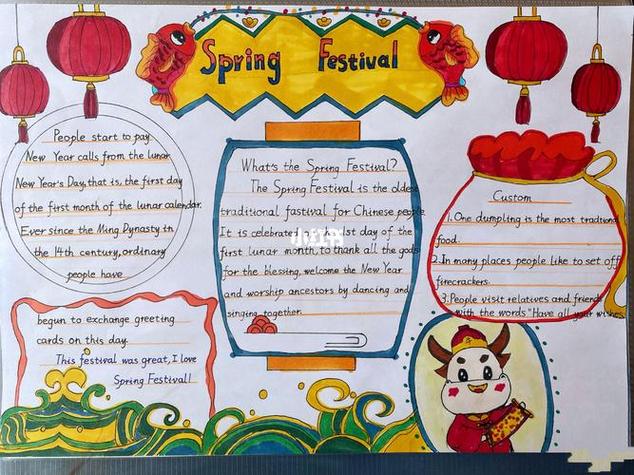 Spring Festival
People start to pay
New Year calls from the lunar
New Year's Day, that is, the first day
of the first month of the lunar calendar.
Ever since the Ming Dynasty in
the 14th century, ordinary
people have
begun to exchange greeting
cards on this day.
This festival was great, I love
Spring Festival!
What's the Spring Festival?
The Spring Festival is the oldest
traditional fastival for Chinese people
It is celebrated 1st day of the
first lunar month, to thank all the gods
for the blessing, welcome the New Year
and worship ancestors by dancing and
singing together.
小红书
Custom
1. One dumpling is the most traditional
food.
2. In many places people like to set off
firecrackers.
3. People visit relatives and friends
with the words "Have all your wishes